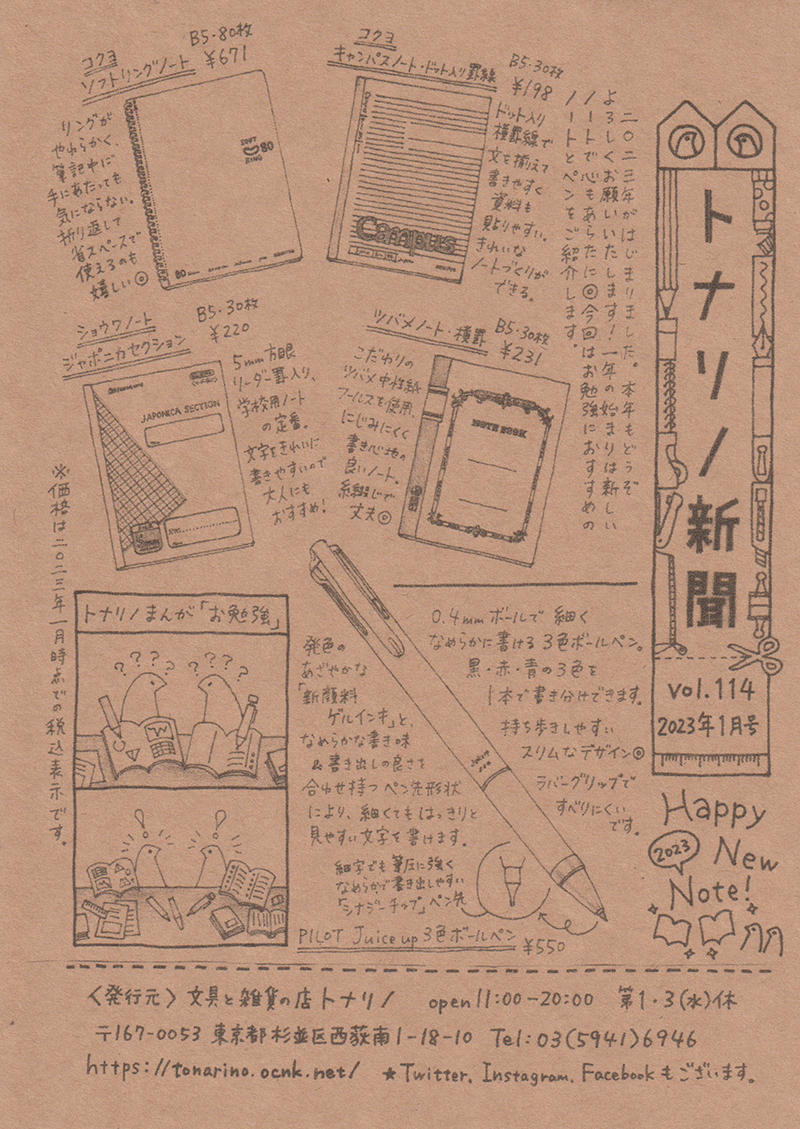 トナリノ新聞
vol.114
2023年1月号
Happy
2023
New
Note!
二〇二三年がはじまりました。本年もどうぞ
よろしくお願いいたします!一年の始まりは新しい
ノートで心もあらたに◎今回はお勉強におすすめの
ノートとペンをご紹介します。
コクヨ
キャンパスノート・ドット入り罫線
B5・30枚
¥198
ドット入り
横罫線で
文を揃えて
書きやすく
資料も
貼りやすい。
きれいな
ノートづくりが
できる。
Campus
コクヨ
ソフトリングノート
B5・80枚
¥671
リングが
やわらかく、
筆記中に
手にあたっても
気にならない。
折り返して
省スペースで
使えるのも
嬉しい◎
SOFT
RING
80
80
ツバメノート・横罫
B5・30枚
¥231
こだわりの
ツバメ中性紙
フールスを使用、
にじみにくく
書き心地の
良いノート。
糸綴じで
丈夫◎
NOTE BOOK
ショウワノート
ジャポニカセクション
B5・30枚
¥220
5mm方眼
リーダー罫入り、
学校用ノート
の定番。
文字をきれいに
書きやすいので
大人にも
おすすめ!
JAPONICA SECTION
※価格は二〇二三年一月時点での税込表示です。
0.4mmボールで細く
なめらかに書ける3色ボールペン。
黒・赤・青の3色を
1本で書き分けできます。
持ち歩きしやすい
スリムなデザイン◎
ラバーグリップで
すべりにくい
です。
発色の
あざやかな
「新顔料
ゲルインキ」と、
なめらかな書き味
&書き出しの良さを
合わせ持つペン先形状
により、細くてもはっきりと
見やすい文字を書けます。
細字でも筆圧に強く
なめらかで書き出しやすい
「シナジーチップ」ペン先
PILOT Juice up 3色ボールペン
¥550
トナリノまんが「お勉強」
? ? ? ?
? ? ? ?
W
!
!
〈発行元〉文具と雑貨の店トナリノ open 11:00-20:00 第1・3(水)休
〒167-0053 東京都杉並区西荻南1-18-10 Tel:03(5941)6946
https://tonarino.ocnk.net/ ★Twitter, Instagram, Facebookもございます。